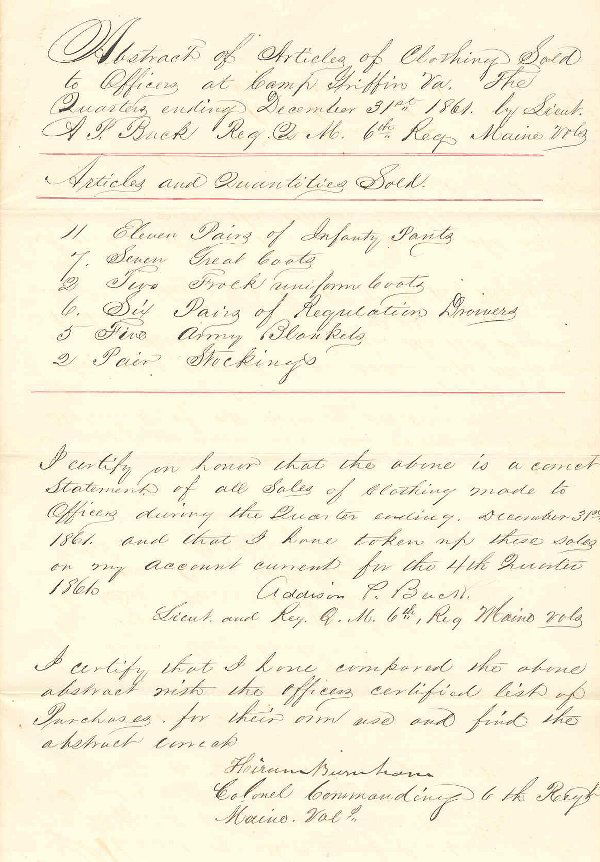 Abstract of Articles of Clothing Sold
to Officers at Camp Griffin Va. The
Quarters ending December 31st 1861. by Lieut.
A P. Buck Reg. Q M. 6th Reg Maine Vols
Articles and Quantities Sold.
11 Eleven Pairs of Infanty Pants
7. Seven Great Coats
2 Two Frock uniform Coats
6. Six Pairs of Regulation Drawers
5 Five Army Blankets
2 Pair Stockings
I certify on honor that the above is a correct
Statement of all Sales of Clothing made to
Officers during the Quarter ending. December 31st
1861. and that I have taken up these Sales
on my account current for the 4th Quarter
1861.
Addison P. Buck.
Lieut. and Reg. Q. M. 6th, Reg Maine Vols
I certify that I have compared the above
abstract with the officers certified list of
Purchases. for their own use and find the
abstract correct
Hiram Burnham
Colonel Commanding 6th Regt
Maine. Vols.